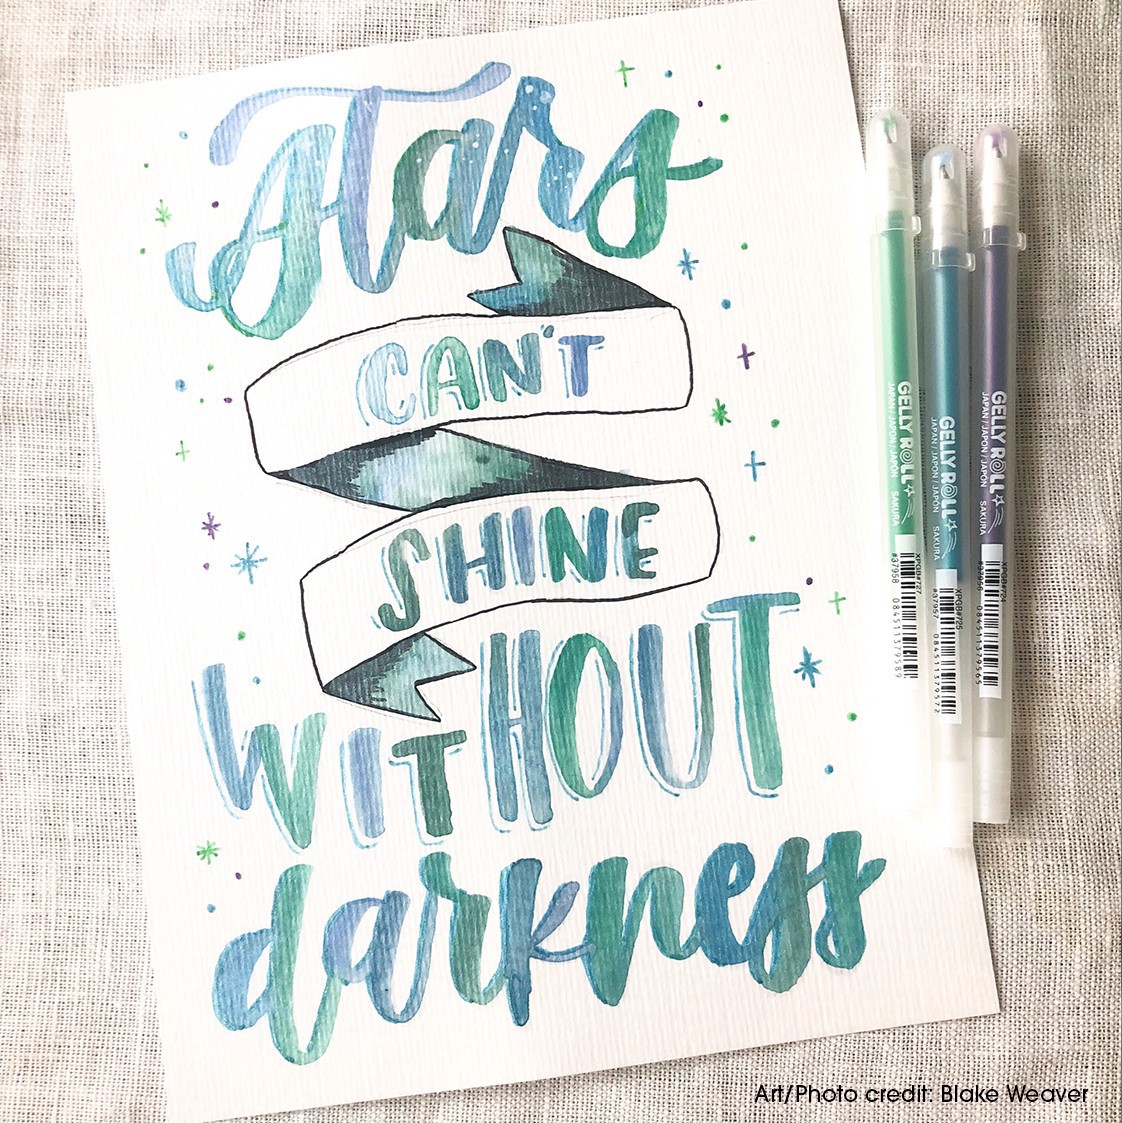 Stars
CAN'T
SHINE
WITHOUT
darkness
GELLY ROLL
JAPAN / JAPON / JAPÓN SAKURA
XPGB#727
#37958 084511379589
GELLY ROLL
JAPAN / JAPON / JAPÓN SAKURA
XPGB#725
#37957 084511379572
GELLY ROLL
JAPAN / JAPON / JAPÓN SAKURA
#37956 084511379565
Art/Photo credit: Blake Weaver